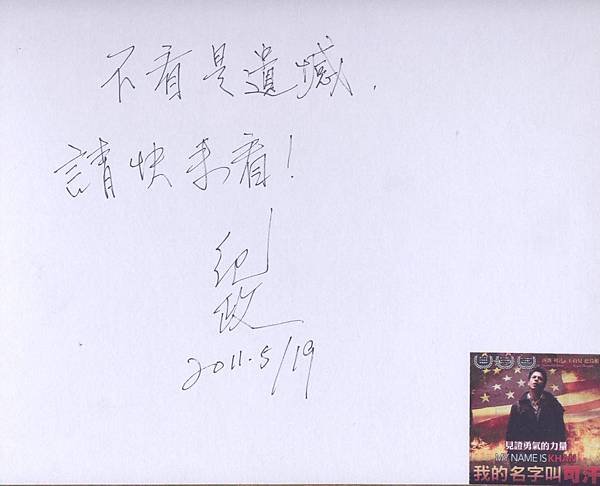 不看是遺憾.
請快來看!
紀政
2011.5/19
見證勇氣的力量
MY NAME IS KHAN
我的名字叫可汗